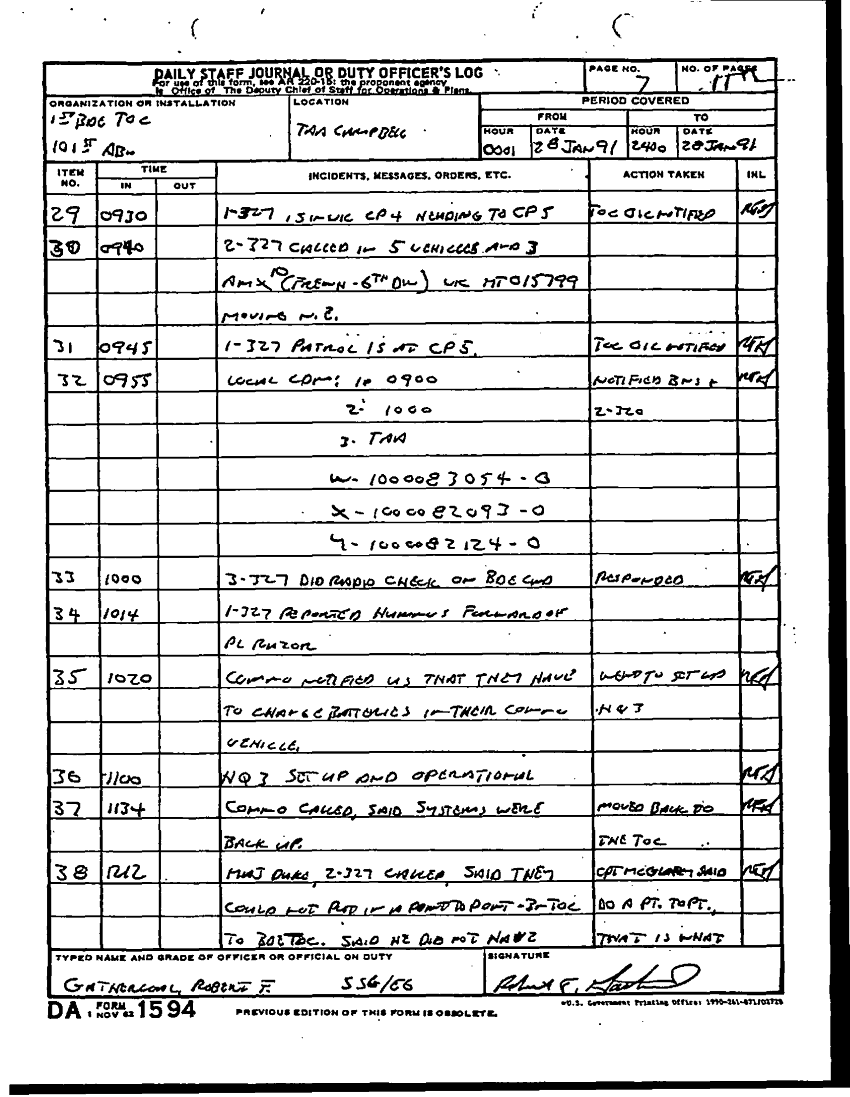 DAILY STAFF JOURNAL OR DUTY OFFICER'S LOG
For use of this form, see AR 220-15; the proponent agency
is Office of The Deputy Chief of Staff for Operations & Plans.
PAGE NO.
7
NO. OF PAGES
ORGANIZATION OR INSTALLATION
1ST BDE TOC
101ST ABN
LOCATION
TAA CAMPBELL
PERIOD COVERED
FROM
TO
HOUR
DATE
HOUR
DATE
0001
28 JAN 91
2400
28 JAN 91
ITEM NO.
TIME
IN
OUT
INCIDENTS, MESSAGES, ORDERS, ETC.
ACTION TAKEN
INL
29 0930 1-327 IS IN VIC CP4 HEADING TO CP5 TOC OIC NOTIFIED
30 0940 2-327 CALLED IN 5 VEHICLES AND 3
AMX 10 (FRENH - 6TH DIV) VIC MT015799
MOVING N.E.
31 0945 1-327 PATROL IS AT CP5. TOC OIC NOTIFIED
32 0955 LOCAL COM: 1. 0900 NOTIFIED BNS +
2. 1000 2-320
3. TAA
W- 1000083054-0
X- 1000082093-0
Y- 1000082124-0
33 1000 3-327 DID RADIO CHECK ON BDE CMD RESPONDED
34 1014 1-327 REPORTED HUMMVS FORWARD OF
PL RAZOR
35 1020 COMMO NOTIFIED US THAT THEY HAVE WENT TO SET UP
TO CHANGE BATTERIES IN THEIR COMMO HQ3
VEHICLE.
36 1100 HQ3 SET UP AND OPERATIONAL
37 1134 COMMO CALLED, SAID SYSTEMS WERE MOVED BACK TO
BACK UP. THE TOC
38 1212 MAJ DUKE, 2-327 CALLED, SAID THEY CPT SAID
COULD NOT PUT IN A POINT TO POINT - BN TOC DO A PT. TO PT.,
TO BDE TOC. SAID HE DID NOT HAVE THAT IS WHAT
TYPED NAME AND GRADE OF OFFICER OR OFFICIAL ON DUTY
ROBERT F. SSG/E6
SIGNATURE
Robert F.
DA FORM 1 NOV 62 1594
PREVIOUS EDITION OF THIS FORM IS OBSOLETE.
U.S. Government Printing Office: